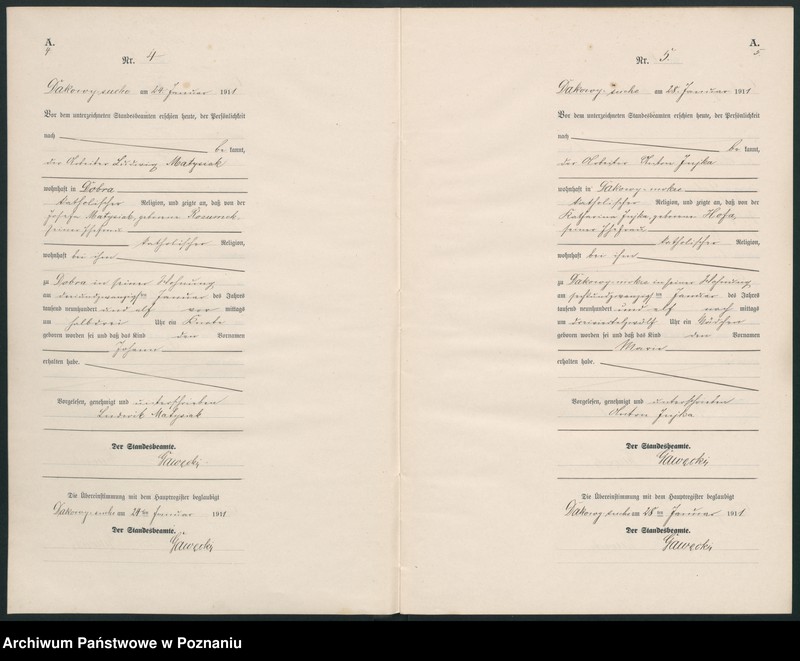 A.
4
Nr. 4
Dakowy suche am 24. Januar 1911
Vor dem unterzeichneten Standesbeamten erschien heute, der Persönlichkeit
nach
be kannt,
der Arbeiter Ludwig Matysiak
wohnhaft in Dobra
katholischer Religion, und zeigte an, daß von der
Josefa Matysiak, geborene
seiner Ehefrau
katholischer Religion,
wohnhaft bei ihm
zu Dobra in seiner Wohnung
am dreiundzwanzigsten Januar des Jahres
tausend neunhundert und elf vor mittags
um halb drei Uhr ein Knabe
geboren worden sei und daß das Kind den Vornamen
Johann
erhalten habe.
Vorgelesen, genehmigt und unterschrieben
Ludwik Matysiak
Der Standesbeamte.
Gawęcki
Die Übereinstimmung mit dem Hauptregister beglaubigt
Dakowy-suche am 24ten Januar 1911
Der Standesbeamte.
Gawęcki
A.
5
Nr. 5.
Dakowy-suche am 28. Januar 1911
Vor dem unterzeichneten Standesbeamten erschien heute, der Persönlichkeit
nach
be kannt,
der Arbeiter Anton
wohnhaft in Dakowy-mokre
katholischer Religion, und zeigte an, daß von der
Katharina geborene
seiner Ehefrau
katholischer Religion,
wohnhaft bei ihm
zu Dakowy-mokre in seiner Wohnung
am sechsundzwanzigsten Januar des Jahres
tausend neunhundert und elf nach mittags
um dreiviertelzwölf Uhr ein Mädchen
geboren worden sei und daß das Kind den Vornamen
Marie
erhalten habe.
Vorgelesen, genehmigt und unterschrieben
Anton
Der Standesbeamte.
Gawęcki
Die Übereinstimmung mit dem Hauptregister beglaubigt
Dakowy-suche am 28ten Januar 1911
Der Standesbeamte.
Gawęcki
Archiwum Państwowe w Poznaniu